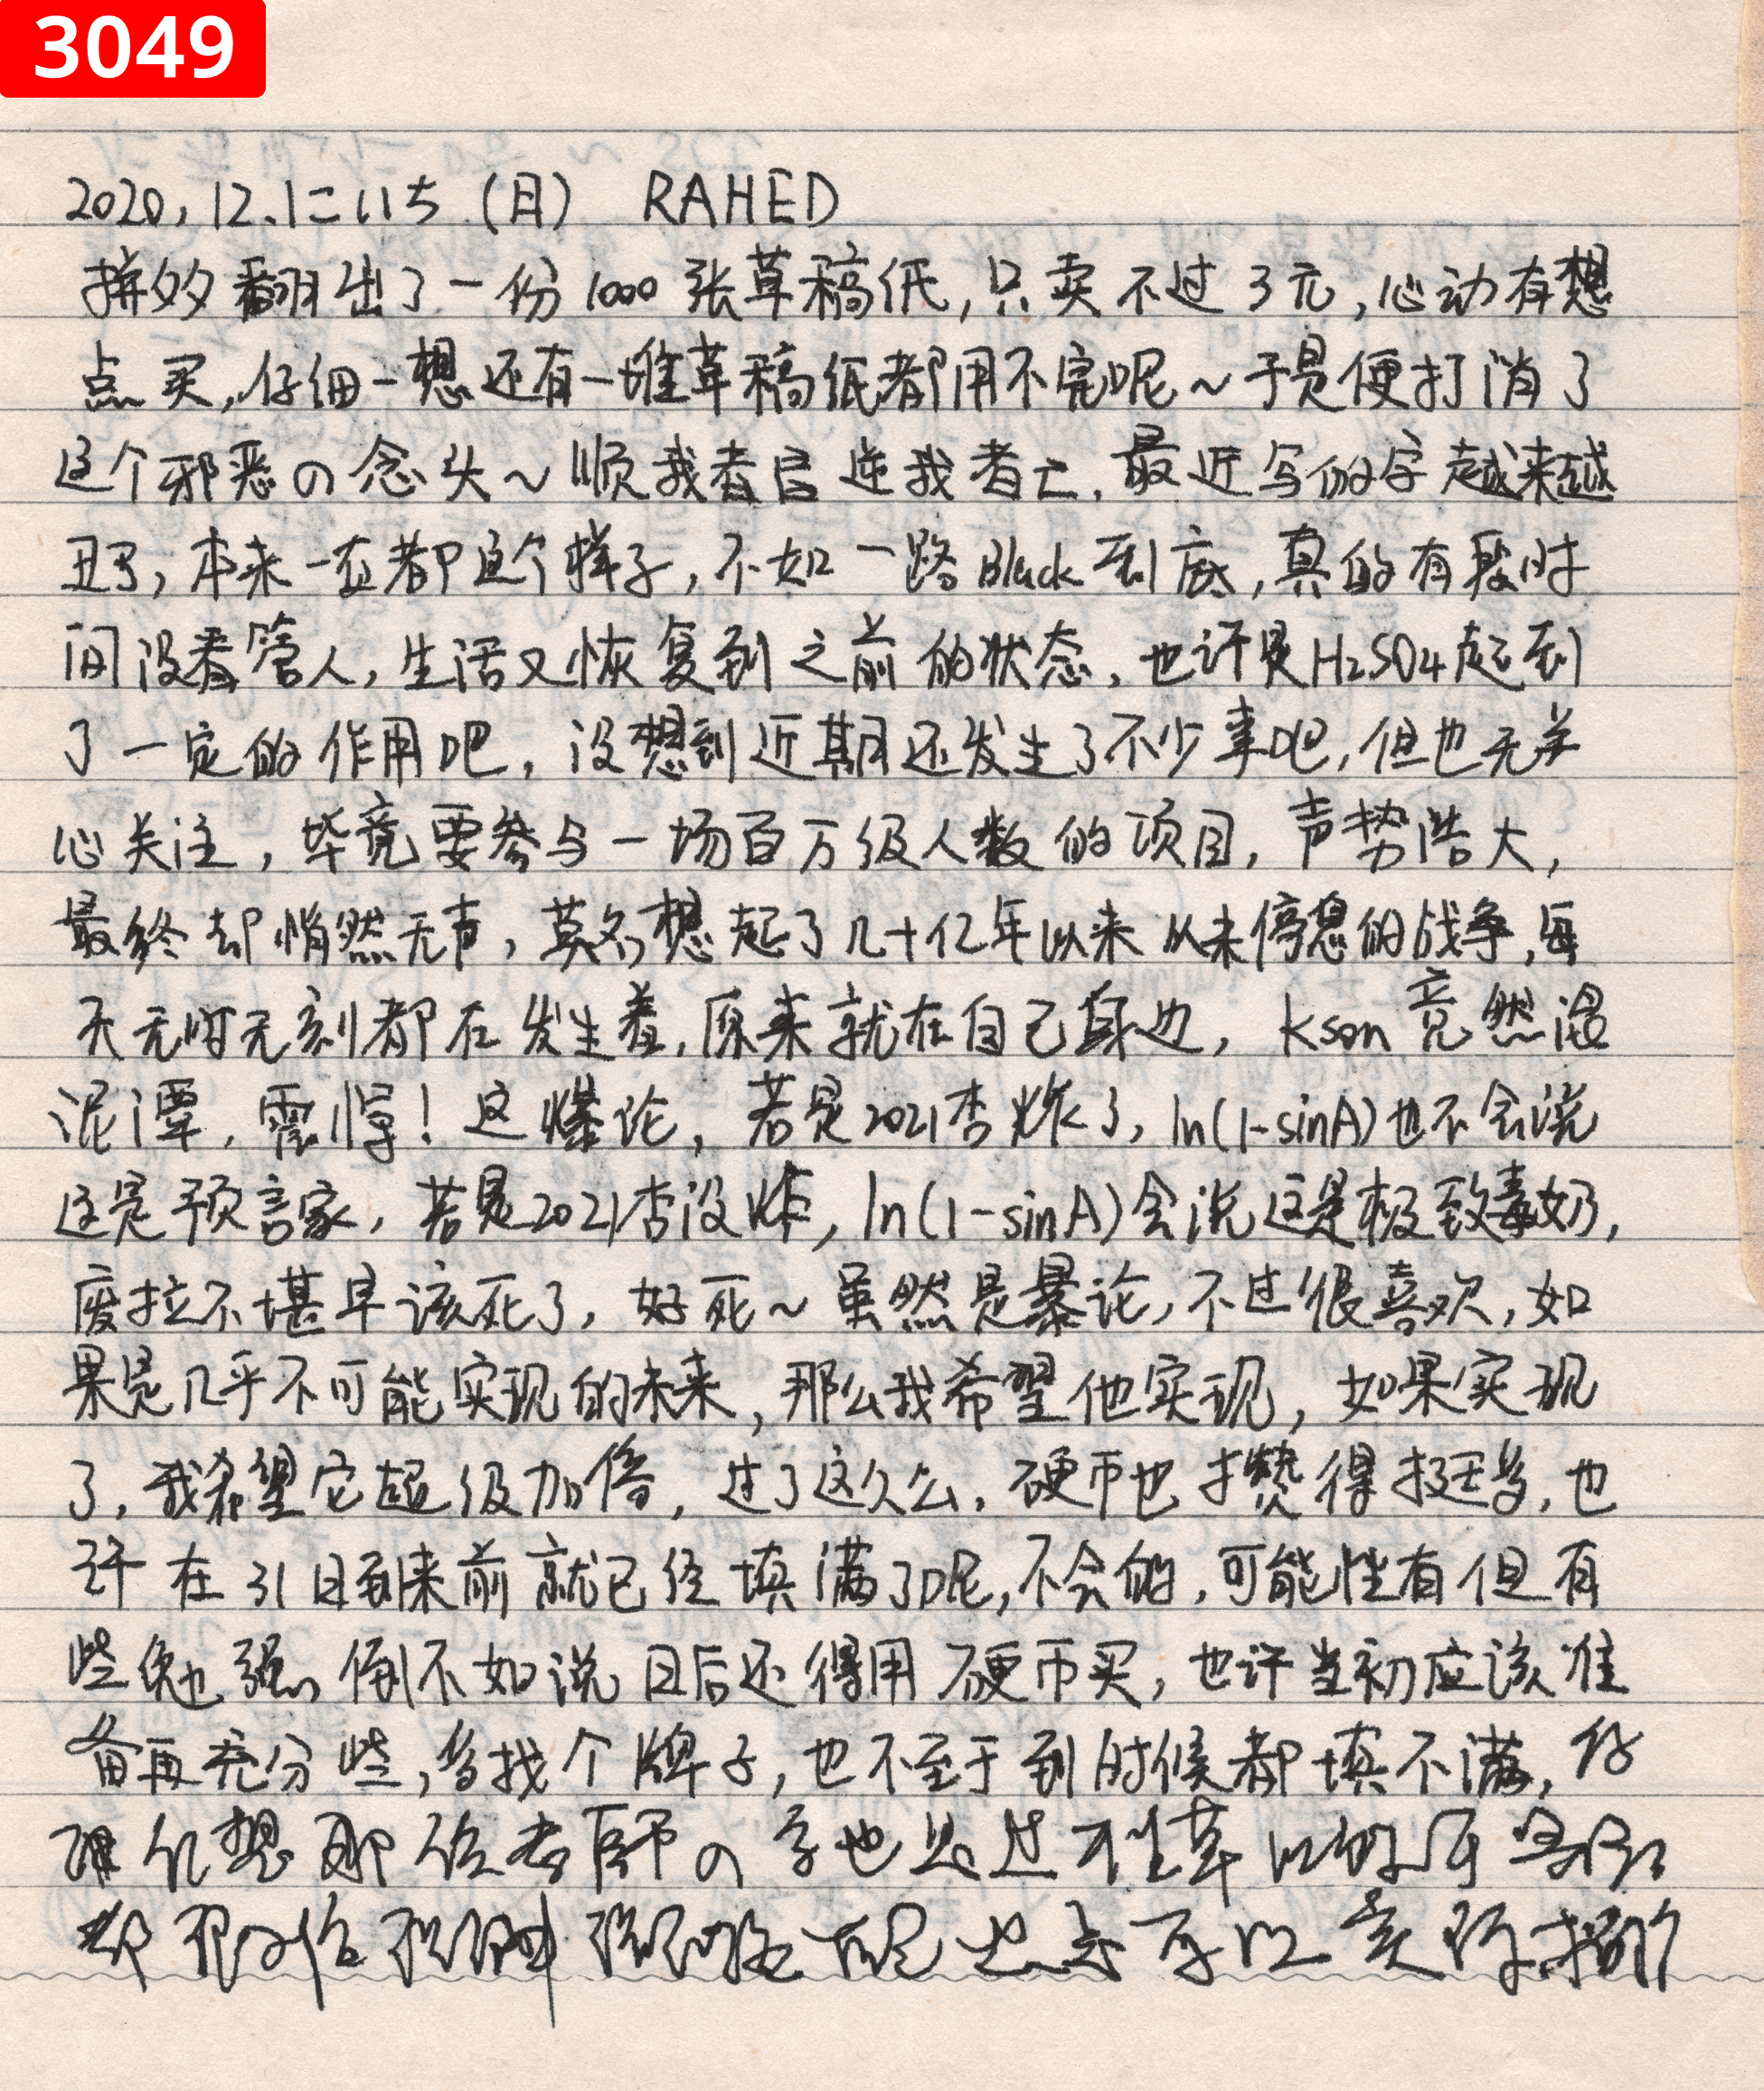 3049
2020,12.1にいち(日) RAHED
拼多多翻出了一份1000张草稿纸,只卖不过3元,心动有想
点买,仔细一想还有一堆草稿纸都用不完呢~于是便打消了
这个邪恶の念头~顺我者昌逆我者亡,最近写的字越来越
丑了,本来一直都这个样子,不如一路Black到底,真的有段时
间没看管人,生活又恢复到之前的状态,也许是H2SO4起到
了一定的作用吧,没想到近期还发生了不少事吧,但也无关
心关注,毕竟要参与一场百万级人数的项目,声势浩大,
最终却悄然无声,莫名想起了几十亿年以来从未停息的战争,每
天无时无刻都在发生着,原来就在自己身边,kson竟然混
泥潭,震惊!这爆论,若是2021杏炸了,ln(1-sinA)也不会说
这是预言家,若是2021杏没炸,ln(1-sinA)会说这是极致毒奶,
废拉不堪早该死了,好死~虽然是暴论,不过很喜欢,如
果是几乎不可能实现的未来,那么我希望他实现,如果实现
了,我希望它超级加倍,过了这久么,硬币也攒得挺多,也
许在31日到来前就已经填满了呢,不会的,可能性有但有
些勉强,倒不如说日后还得用硬币买,也许当初应该准
备再充分些,多找个牌子,也不至于到时候都填不满,仔
想那位老师の字也
也是可以实际